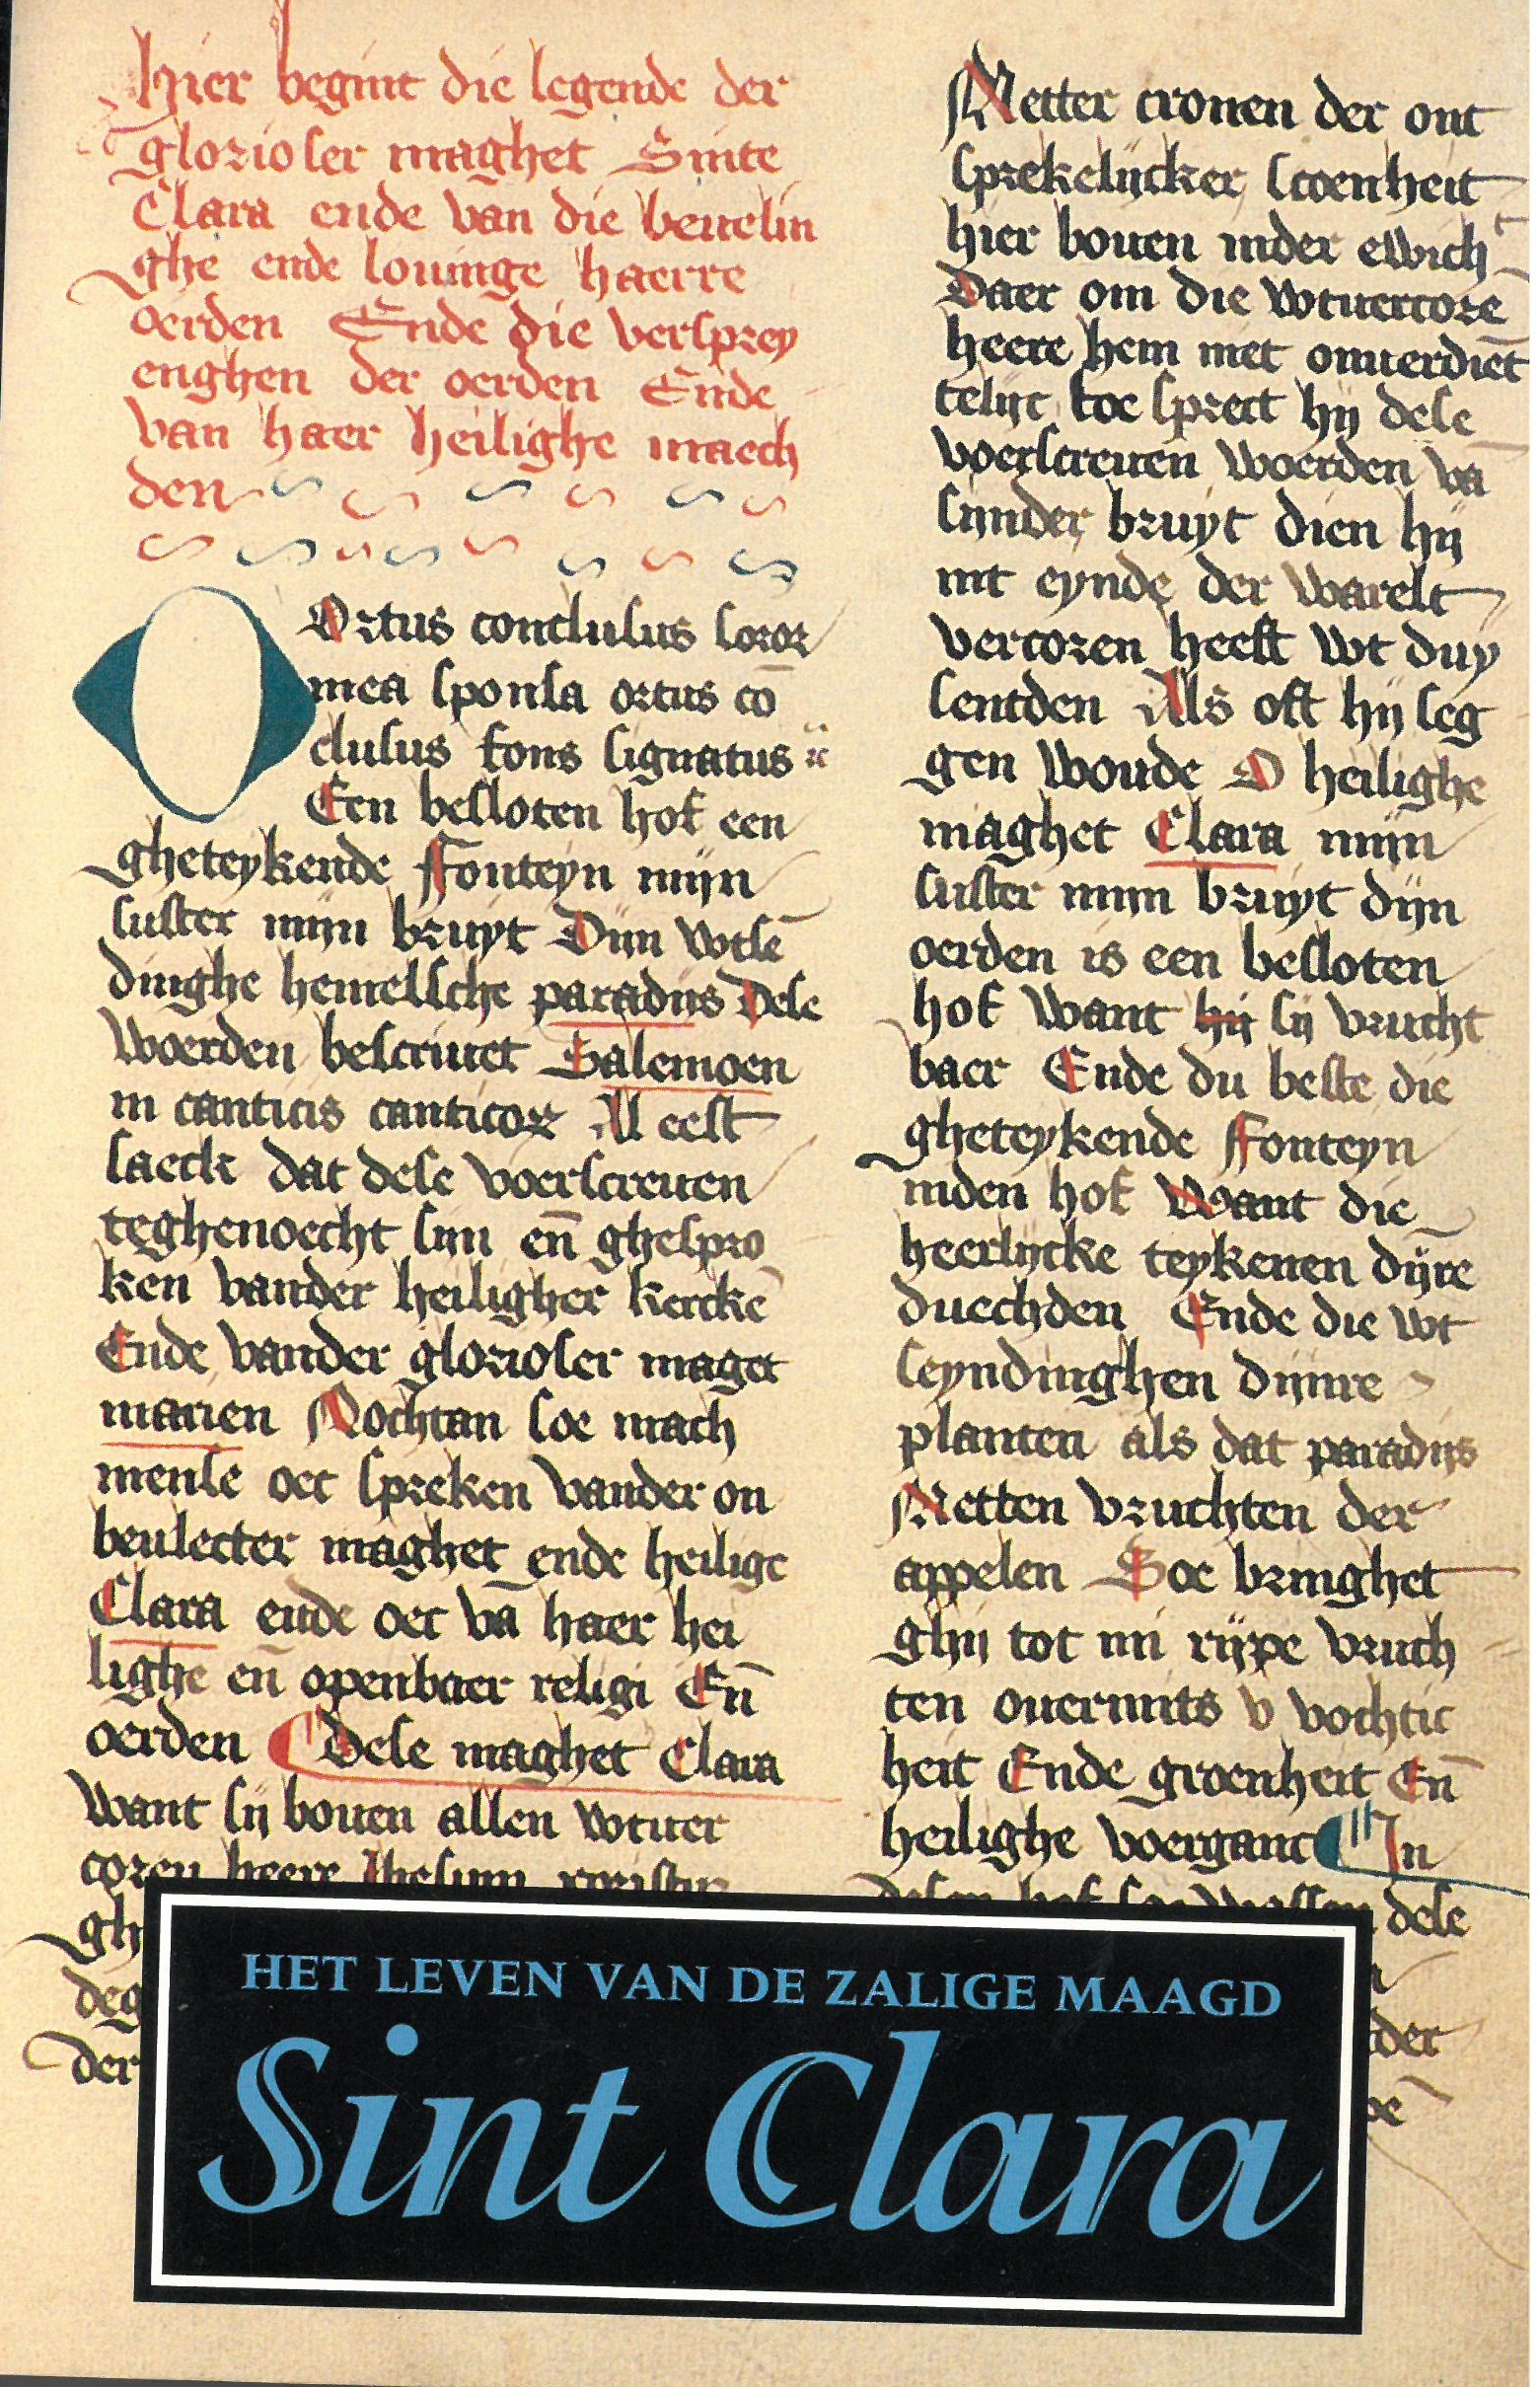 Hier begint die legende der
glorioser maghet Sinte
Clara ende van die beuelin
ghe ende louinge haerre
oerden Ende die versprey
enghen der oerden Ende
van haer heilighe maech
den
Ortus conclusus soror
mea sponsa ortus cō
clusus fons signatus
Een besloten hof een
gheteykende ffonteyn mijn
suster mijn bruyt Dijn wtsē
dinghe hemelsche paradijs Dese
woerden bescriuet Salemoen
in canticis canticor Al eest
saeck dat dese voerscreuen
teghenoecht sijn eñ ghespro
ken vander heiligher kerckē
Ende vander glorioser maget
marien Nochtan soe mach
mense oec spreken vander on
beulecter maghet ende heilige
Clara ende oec vā haer hei
lighe eñ openbaer religi Eñ
oerden Dese maghet Clara
want sij bouen allen wtuer
coren heere Ihesum
gh
deg
der
Metter cronen der ont
sprekelijcker scoenheit
hier bouen inder ewich t
Daer om die wtuercorē
heere hem met onuerdiēt
telijc toe sprect hij dese
voerscreuen woerden vā
sijnder bruyt dien hij
int eynde der warelt
vercoren heeft wt duy
sentden Als oft hij seg
gen woude O heilighe
maghet Clara mijn
suster mijn bruyt dijn
oerden is een besloten
hof want hij sij vrucht
baer Ende du beste die
gheteykende ffonteyn
inden hof Want die
heerlijcke teykenen dijre
duechden Ende die wt
seyndinghen dijnre
planten als dat paradijs
Metten vruchten der
appelen Soe bringhet
ghij tot mi rijpe vruch
ten ouermits v vochtic
heit Ende groenheit Eñ
heilighe voerganc In
desen hof dese
der
HET LEVEN VAN DE ZALIGE MAAGD
Sint Clara